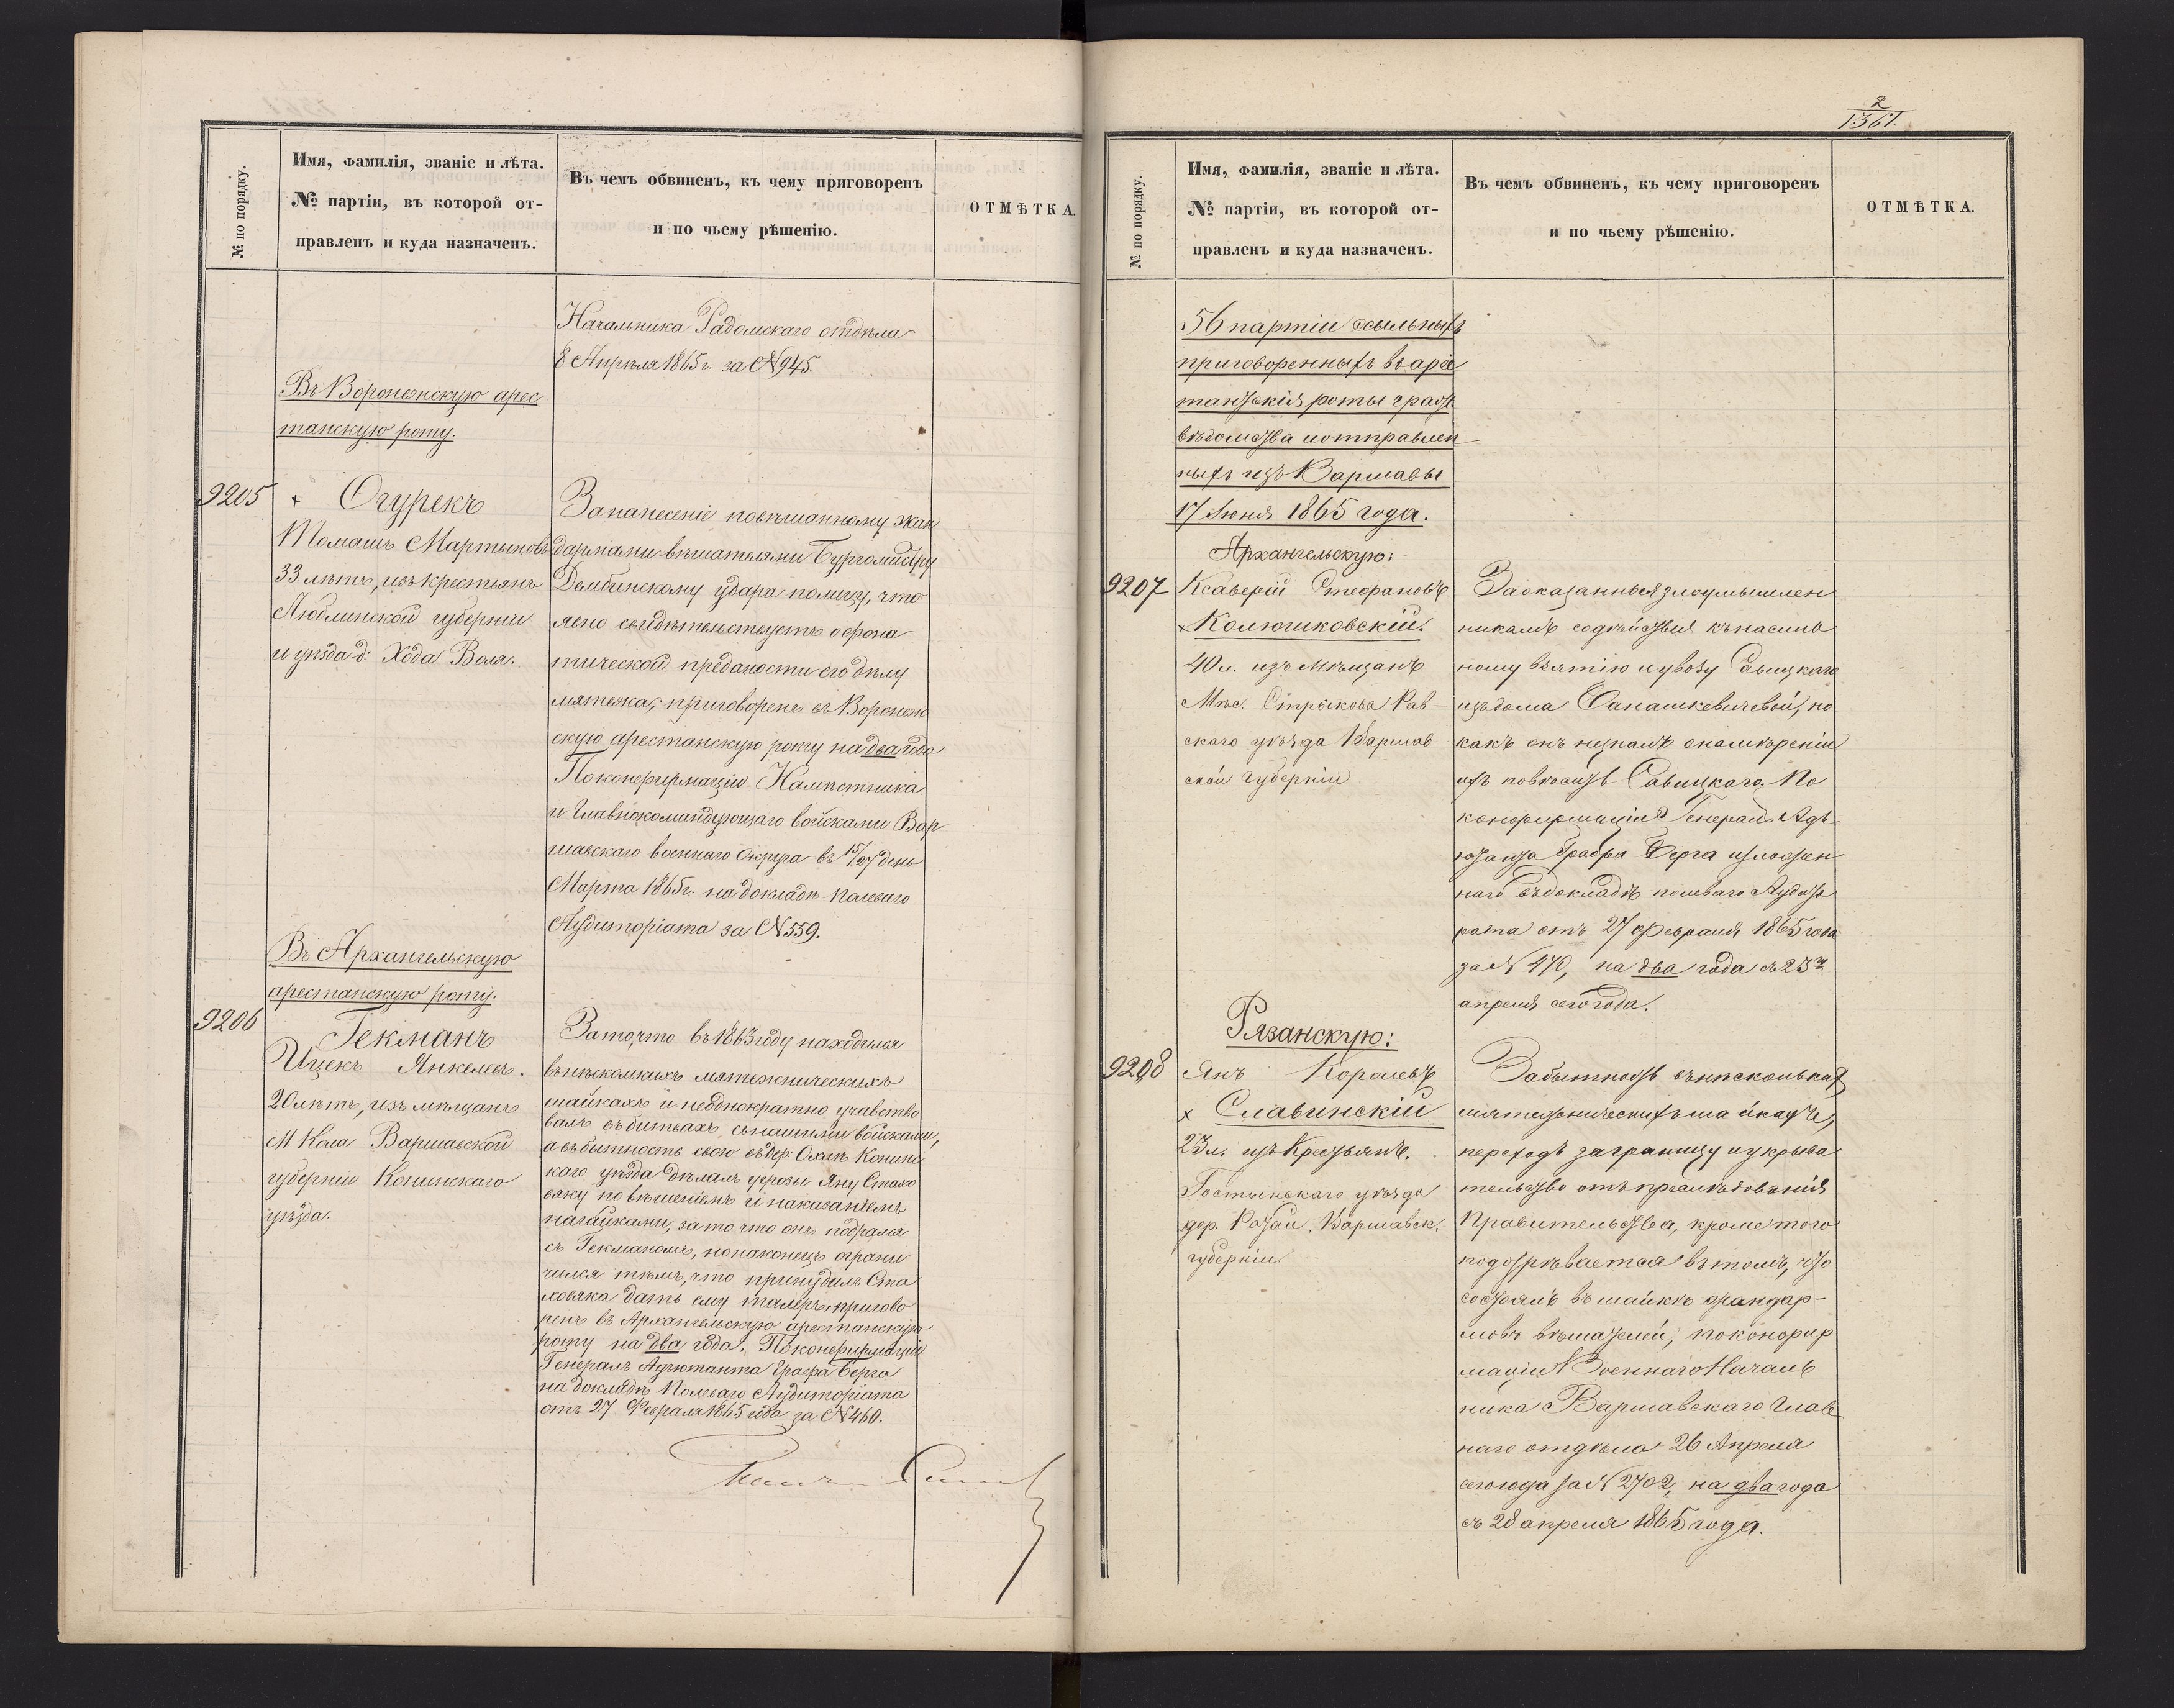 № по порядку.
Имя, фамилія, званіе и лѣта.
№ партіи, въ которой от-
правленъ и куда назначенъ.
Въ чемъ обвиненъ, къ чему приговоренъ
и по чьему рѣшенію.
ОТМѢТКА.
Начальника Радомскаго отдѣла
8 Апрѣля 1865 г. за № 945.
Въ Воронежскую арес
танскую роту.
9205
× Огурекъ
Томашъ Мартыновъ
33 лѣтъ, изъ крестьянъ
Люблинской губерніи
и уѣзда д: Хода Воля.
За нанесеніе повѣшанному жан
дармами-вѣшателями Бургомистру
Дембинскому удара по лицу, что
явно свидѣтельствуетъ о фана
тической преданости его дѣлу
мятежа, приговоренъ въ Воронеж
скую арестанскую роту на два года
По конфирмаціи Намѣстника
и Главнокомандующаго войсками Вар
шавскаго военнаго Округа въ 15/27 день
Марта 1865 г. на докладѣ Полеваго
Аудиторіата за № 559.
Въ Архангельскую
арестанскую роту.
9206
Гекманъ
Ицекъ Янкелевъ.
20 лѣтъ, изъ мѣщанъ
М Кола Варшавской
губерніи Конинскаго
уѣзда.
За то, что въ 1863 году находился
въ нѣсколькихъ мятежническихъ
шайкахъ и неоднократно учавство
валъ въ битвахъ съ нашими войсками,
а въ бытность свою въ дер: Охлѣ Конинс
каго уѣзда дѣлалъ угрозы Яну Стахо
вяку повѣшеніемъ и наказаніемъ
нагайками, за то что онъ подрался
съ Гекманомъ, но наконецъ ограни
чился тѣмъ, что принудилъ Ста
ховяка дать ему талеръ, пригово
ренъ въ Архангельскую арестанскую
роту на два года. По конфирмаціи
Генералъ Адъютанта Графа Берга
на докладѣ Полеваго Аудиторіата
отъ 27 Февраля 1865 года за № 460.
2
1361.
№ по порядку.
Имя, фамилія, званіе и лѣта.
№ партіи, въ которой от-
правленъ и куда назначенъ.
Въ чемъ обвиненъ, къ чему приговоренъ
и по чьему рѣшенію.
ОТМѢТКА.
56 партіи ссыльныхъ
приговоренныхъ въ аре
тантскія роты гражд
вѣдомства и отправлен
ныхъ изъ Варшавы
17 Іюня 1865 года.
Архангельскую:
9207
Ксаверій Стефановъ
× Колюшковскій.
40 л. изъ Мѣщанъ
Мѣс. Стрыкова Рав-
скаго уѣзда Варшав
ской губерніи
За оказанныя злоумышлен
никамъ содѣйствія къ насиль
ному взятію и увозу Савицкаго
изъ дома Банашкевичевой, но
какъ онъ незналъ о намѣреніи
ихъ повѣсить Савицкаго. По
конфирмаціи Генералъ Адъ
ютанта Графа Берга изложен
наго въ докладѣ полеваго Аудито
рата отъ 27 февраля 1865 года
за № 470, на два года съ 23го
апреля сего года.
Рязанскую:
9208
Янъ Королевъ
× Славинскій
23 л. изъ Крестьянъ.
Гостынскаго уѣзда
дер. Варшавск.
губерніи
За бытность въ нѣсколькихъ
мятежническихъ шайкахъ,
переходъ заграницу и укрыва
тельство отъ преслѣдованія
Правительства, кроме того
подозрѣвается въ томъ, что
состоялъ въ шайкѣ жандар-
мовъ вѣшателей; по конфир
маціи Военнаго Началь
ника Варшавскаго Глав
наго отдѣла 26 Апреля
сего года за № 2702, на два года
съ 28 апреля 1865 года.